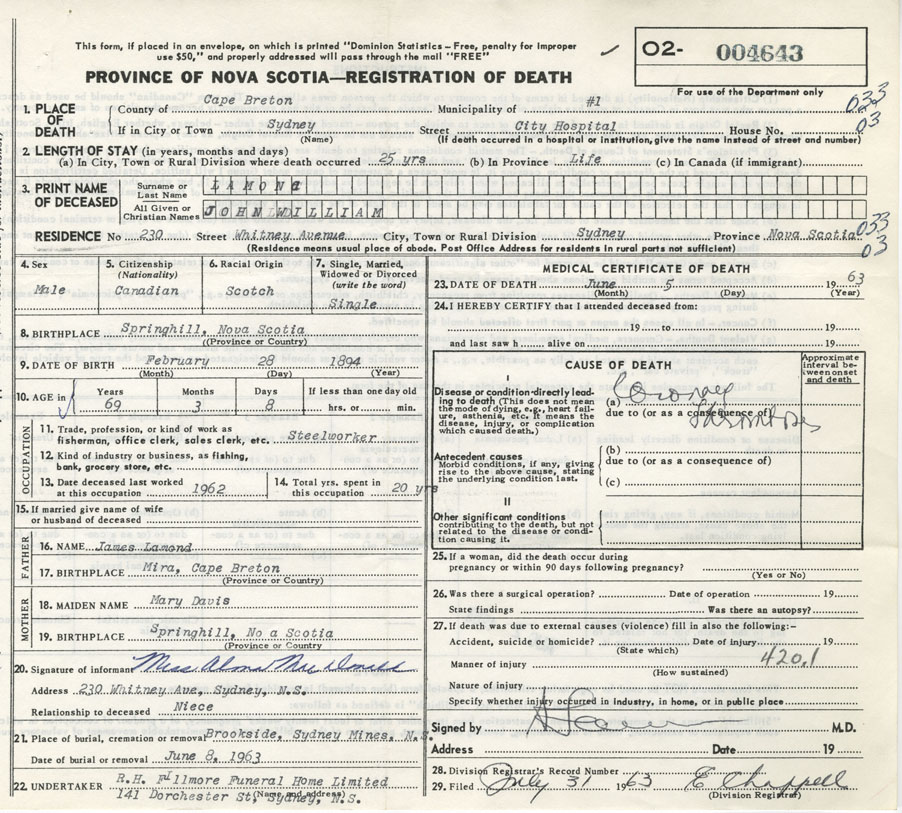 This form, if placed in an envelope, on which is printed "Dominion Statistics - Free, penalty for improper
use $50," and properly addressed will pass through the mail "FREE"
✓ O2- 004643
PROVINCE OF NOVA SCOTIA—REGISTRATION OF DEATH
For use of the Department only
1. PLACE OF DEATH
County of Cape Breton Municipality of #1 033
03
If in City or Town Sydney Street City Hospital House No.
(Name) (If death occurred in a hospital or institution, give the name instead of street and number)
2. LENGTH OF STAY (in years, months and days)
(a) In City, Town or Rural Division where death occurred 25 yrs (b) In Province Life (c) In Canada (if immigrant)
3. PRINT NAME OF DECEASED
Surname or Last Name LAMOND
All Given or Christian Names JOHN WILLIAM
RESIDENCE No 230 Street Whitney Avenue City, Town or Rural Division Sydney Province Nova Scotia 033
03
(Residence means usual place of abode. Post Office Address for residents in rural parts not sufficient)
4. Sex
Male
5. Citizenship
(Nationality)
Canadian
6. Racial Origin
Scotch
7. Single, Married,
Widowed or Divorced
(write the word)
Single
8. BIRTHPLACE Springhill, Nova Scotia
((Province or Country)
9. DATE OF BIRTH February 28 1894
(Month) (Day) (Year)
10. AGE in
Years Months Days If less than one day old
69 3 8 hrs. or min.
OCCUPATION
11. Trade, profession, or kind of work as
fisherman, office clerk, sales clerk, etc. Steelworker
12. Kind of industry or business, as fishing,
bank, grocery store, etc.
13. Date deceased last worked
at this occupation 1962
14. Total yrs. spent in
this occupation 20 yrs
15. If married give name of wife
or husband of deceased
FATHER
16. NAME James Lamond
17. BIRTHPLACE Mira, Cape Breton
(Province or Country)
MOTHER
18. MAIDEN NAME Mary Davis
19. BIRTHPLACE Springhill, No a Scotia
(Province or Country)
20. Signature of informant Miss
Address 230 Whitney Ave, Sydney, N.S.
Relationship to deceased Niece
21. Place of burial, cremation or removal Brookside, Sydney Mines, N.S.
Date of burial or removal June 8, 1963
22. UNDERTAKER R.H. Fillmore Funeral Home Limited
141 Dorchester St, Sydney, N.S.
(Name and address)
MEDICAL CERTIFICATE OF DEATH
23. DATE OF DEATH June 5 1963
(Month) (Day) (Year)
24. I HEREBY CERTIFY that I attended deceased from:
19 to 19
and last saw h alive on 19
CAUSE OF DEATH
Approximate interval between onset and death
I
Disease or condition directly leading to death (This does not mean the mode of dying, e.g., heart failure, asthenia, etc. It means the disease, injury, or complication which caused death.)
(a) Coronary
due to (or as a consequence of)
Thrombosis
Antecedent causes
Morbid conditions, if any, giving rise to the above cause, stating the underlying condition last.
(b)
due to (or as a consequence of)
(c)
II
Other significant conditions
contributing to the death, but not related to the disease or condition causing it.
25. If a woman, did the death occur during
pregnancy or within 90 days following pregnancy?
(Yes or No)
26. Was there a surgical operation? Date of operation 19
State findings Was there an autopsy?
27. If death was due to external causes (violence) fill in also the following:-
Accident, suicide or homicide? Date of injury 19
(State which)
Manner of injury 420.1
(How sustained)
Nature of injury
Specify whether injury occurred in industry, in home, or in public place
Signed by M.D.
Address Date 19
28. Division Registrar's Record Number
29. Filed July 31 1963 E Chappell
(Division Registrar)